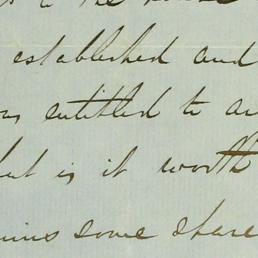 established and
entitled to
but is it worth
some share